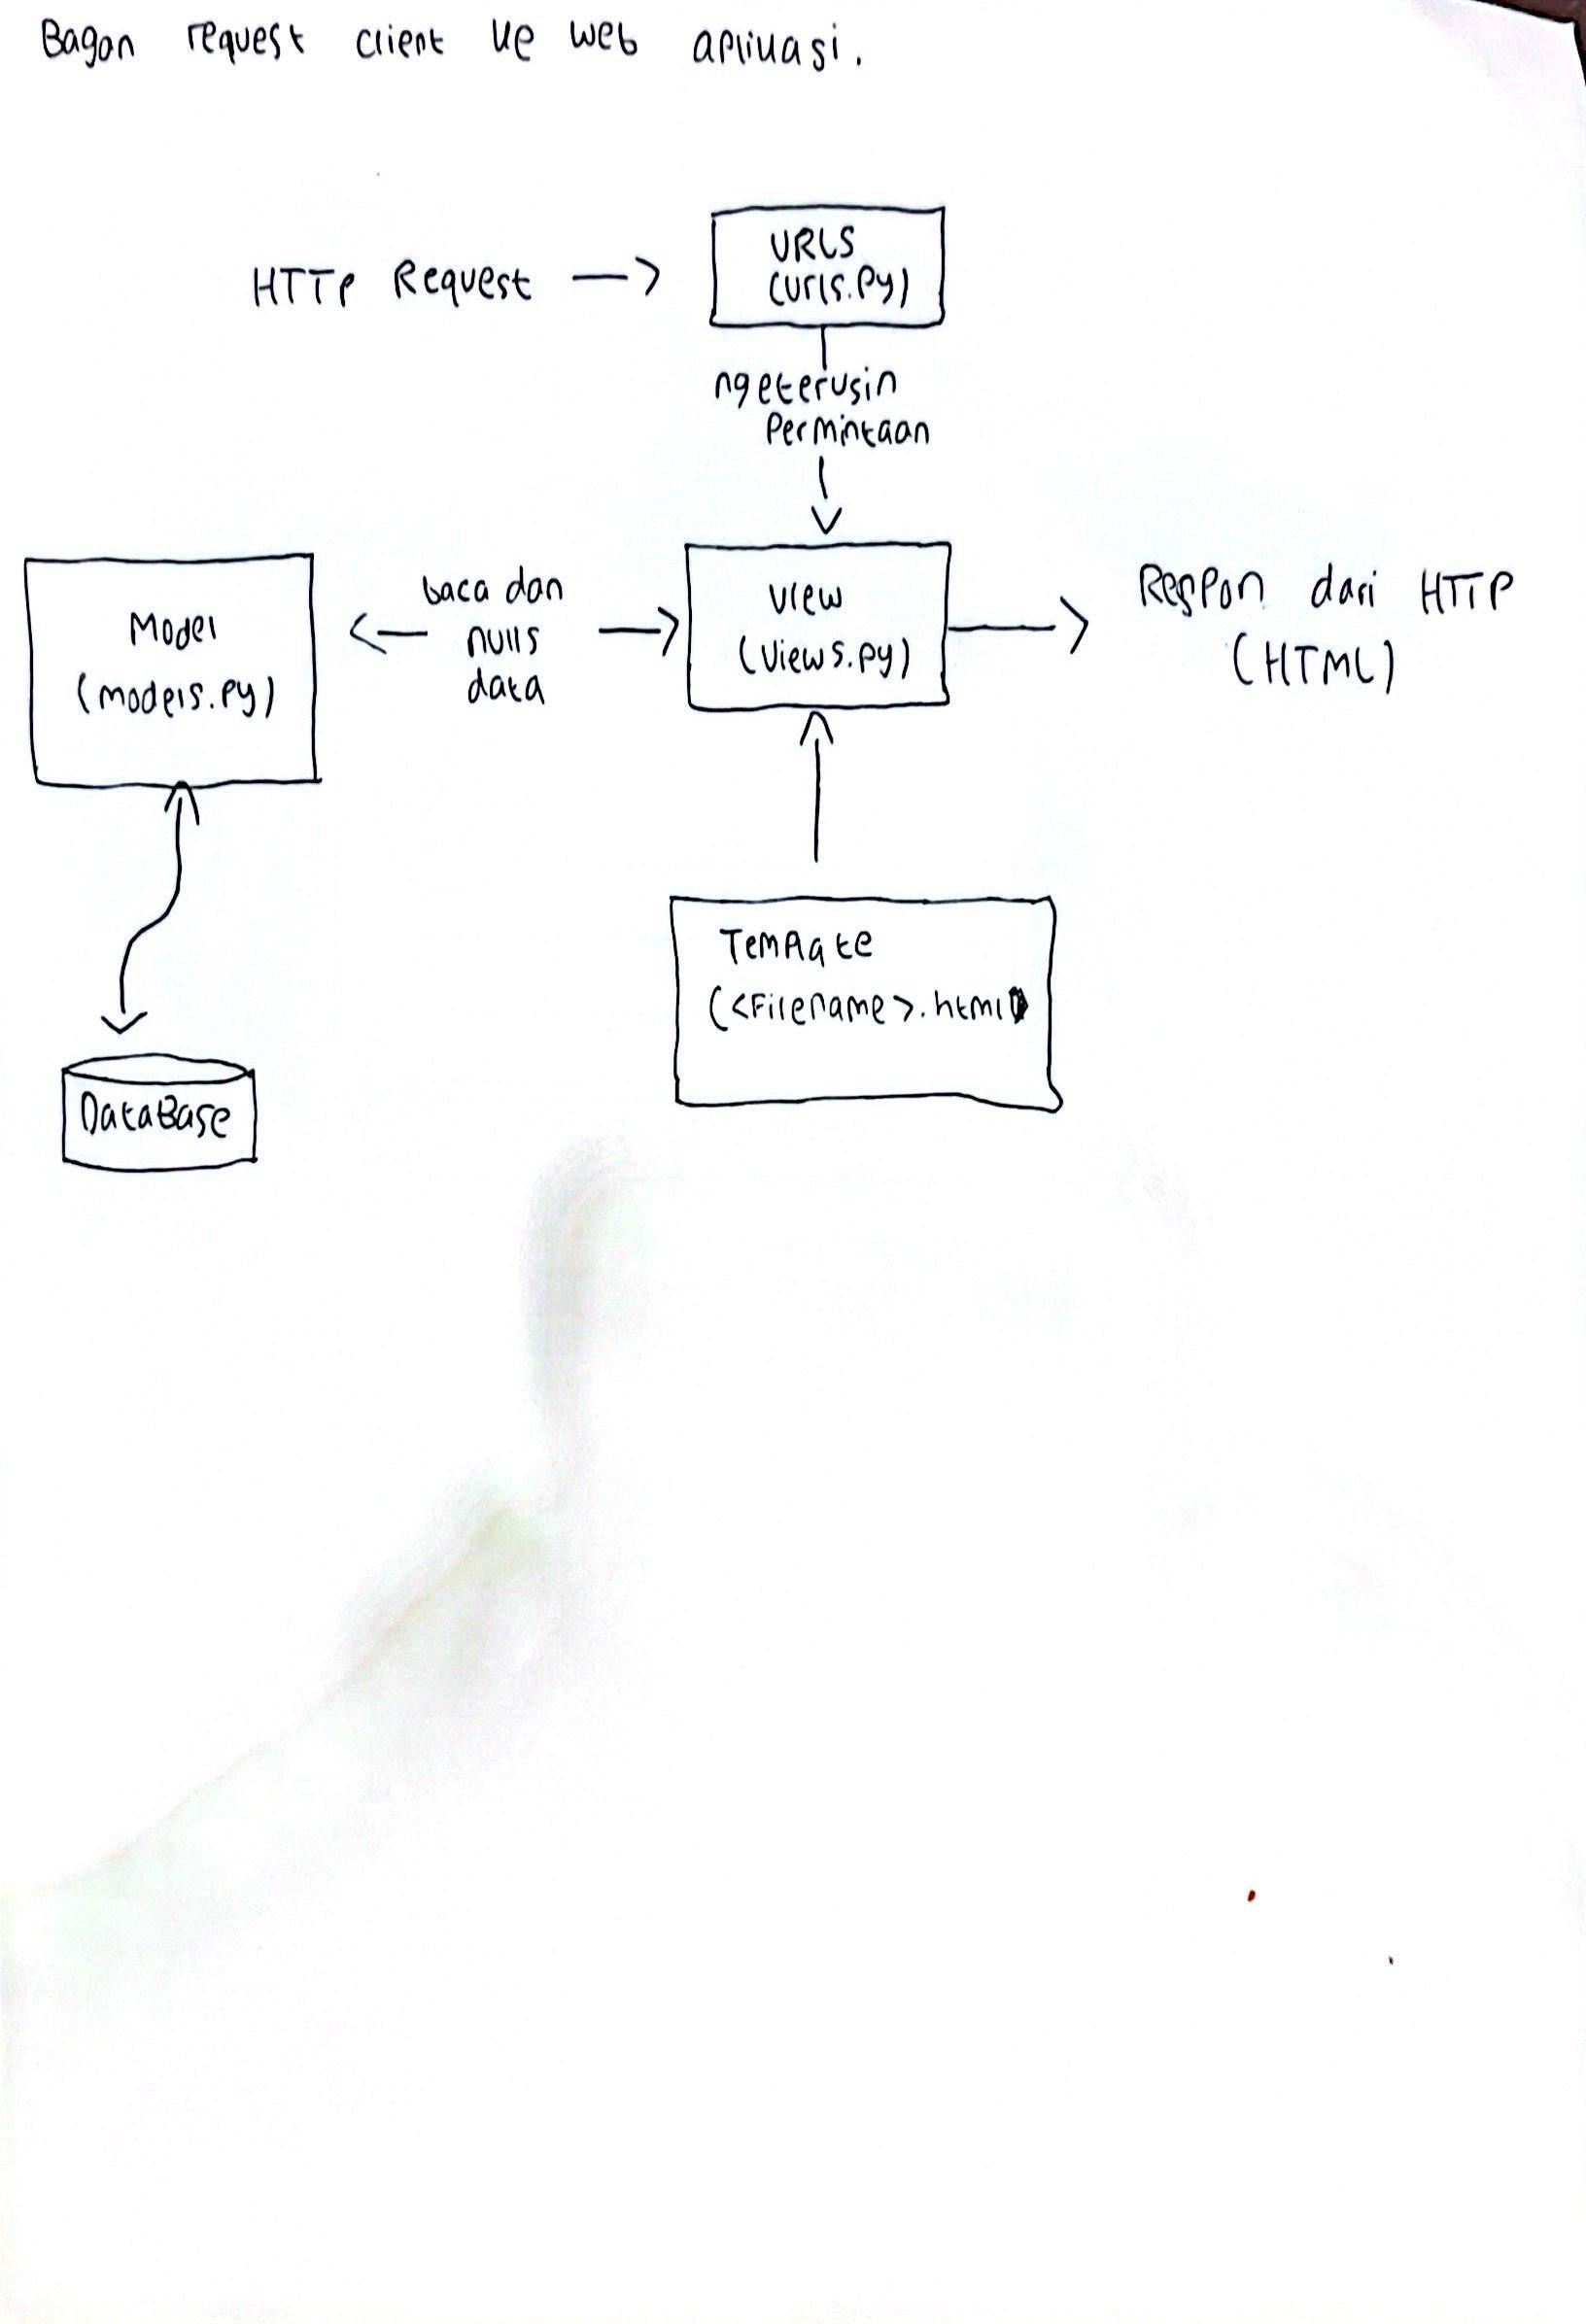 Bagan request client ke web aplikasi.
HTTP Request
URLS
(urls.py)
ngeterusin
Permintaan
Model
(models.py)
baca dan
nulis
data
view
(views.py)
Respon dari HTTP
(HTML)
Template
(<Filename>.html)
DataBase